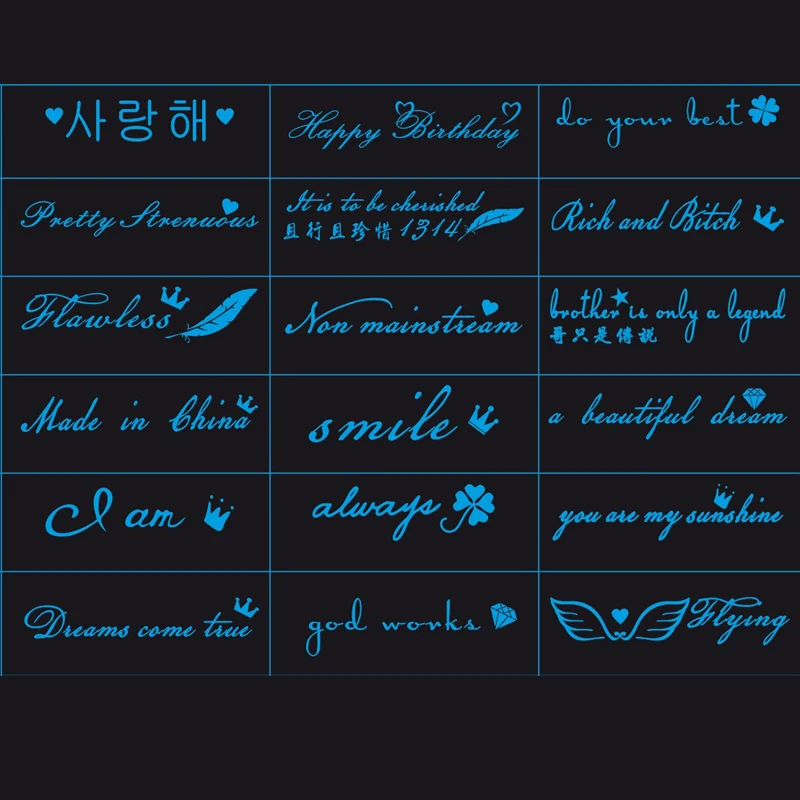 사랑해
Happy Birthday
do your best
Pretty Strenuous
It is to be cherished
且行且珍惜 1314
Rich and Bitch
Flawless
Non mainstream
brother is only a legend
哥只是傳說
Made in China
smile
a beautiful dream
I am
always
you are my sunshine
Dreams come true
god works
Flying